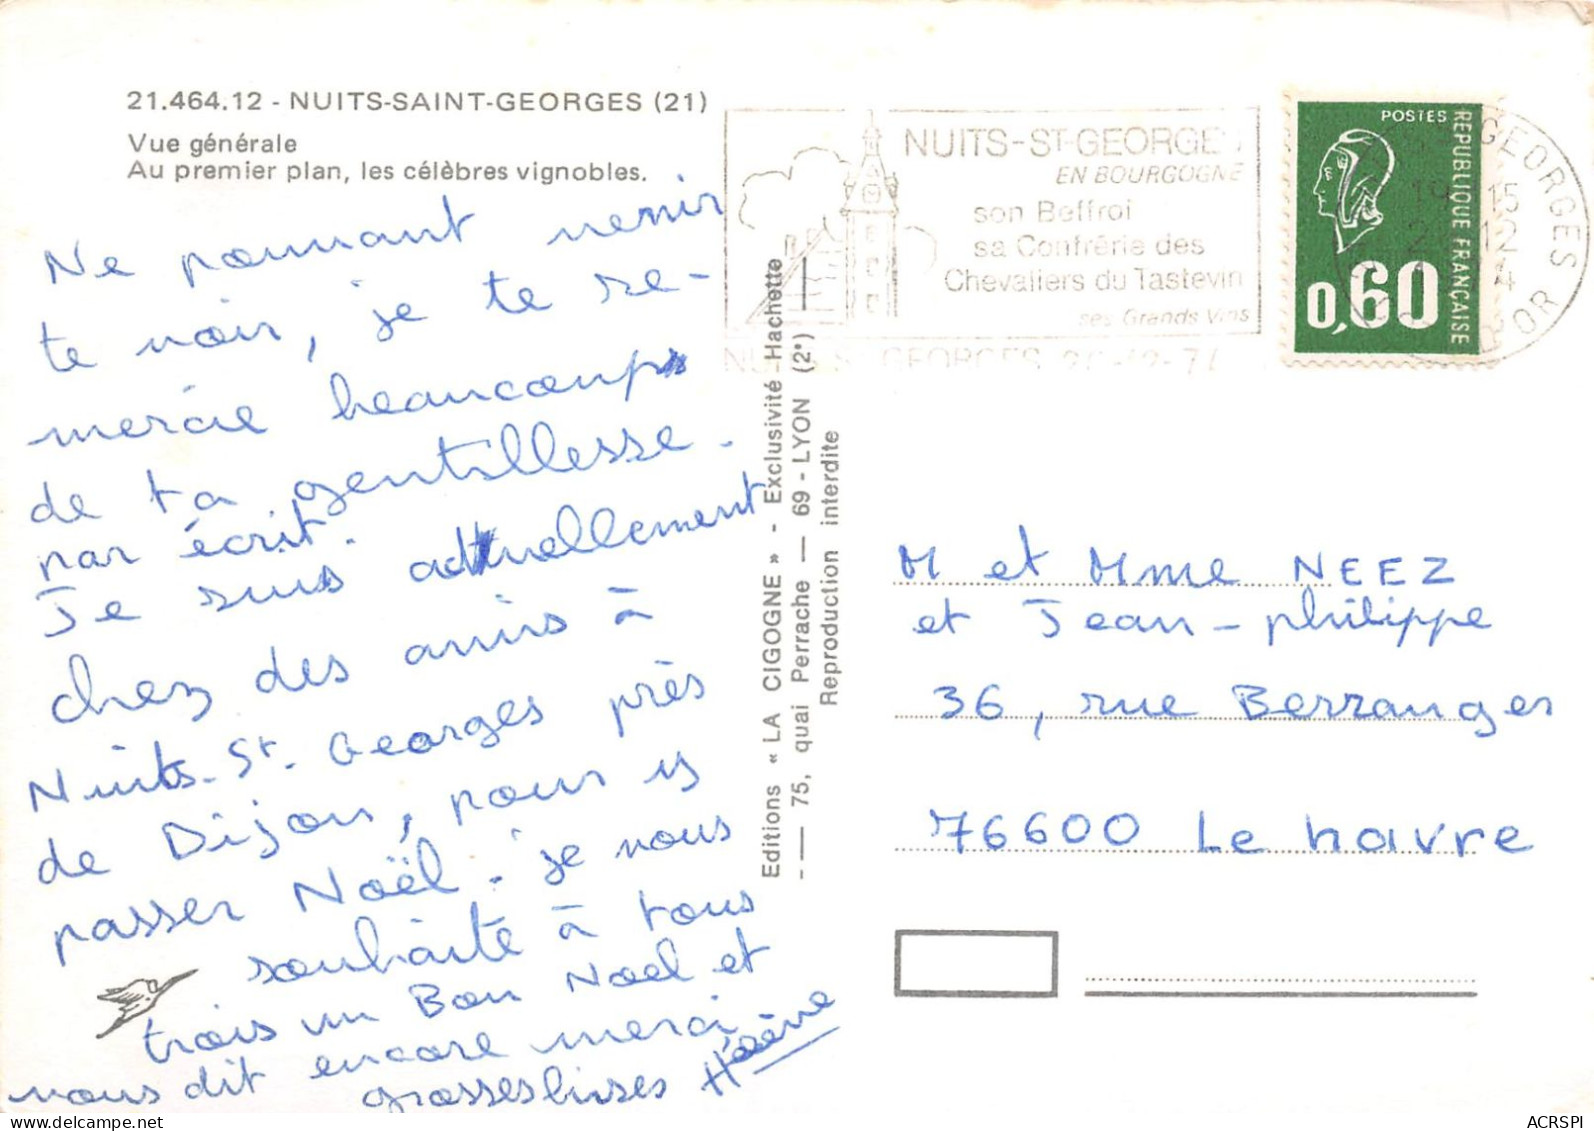 21.464.12 - NUITS-SAINT-GEORGES (21)
Vue générale
Au premier plan, les célèbres vignobles.
Ne pouvant venir
te voir, je te re-
mercie beaucoup
de ta gentillesse.
par écrit.
Je suis actuellement
chez des amis à
Nuits-St-Georges près
de Dijon, pour y
passer Noël. je vous
souhaite à tous
trois un Bon Noel et
vous dit encore merci
grosses bises Hélène
Editions « LA CIGOGNE » - Exclusivité Hachette
- — 75, quai Perrache — 69 - LYON (2e)
Reproduction interdite
NUITS-ST-GEORGES
EN BOURGOGNE
son Beffroi
sa Confrérie des
Chevaliers du Tastevin
ses Grands Vins
NUITS ST GEORGES 26-12-74
POSTES
REPUBLIQUE FRANÇAISE
0,60
GEORGES
15
12
OR
M et Mme NEEZ
et Jean-philippe
36, rue Berranger
76600 Le havre
ACRSPI